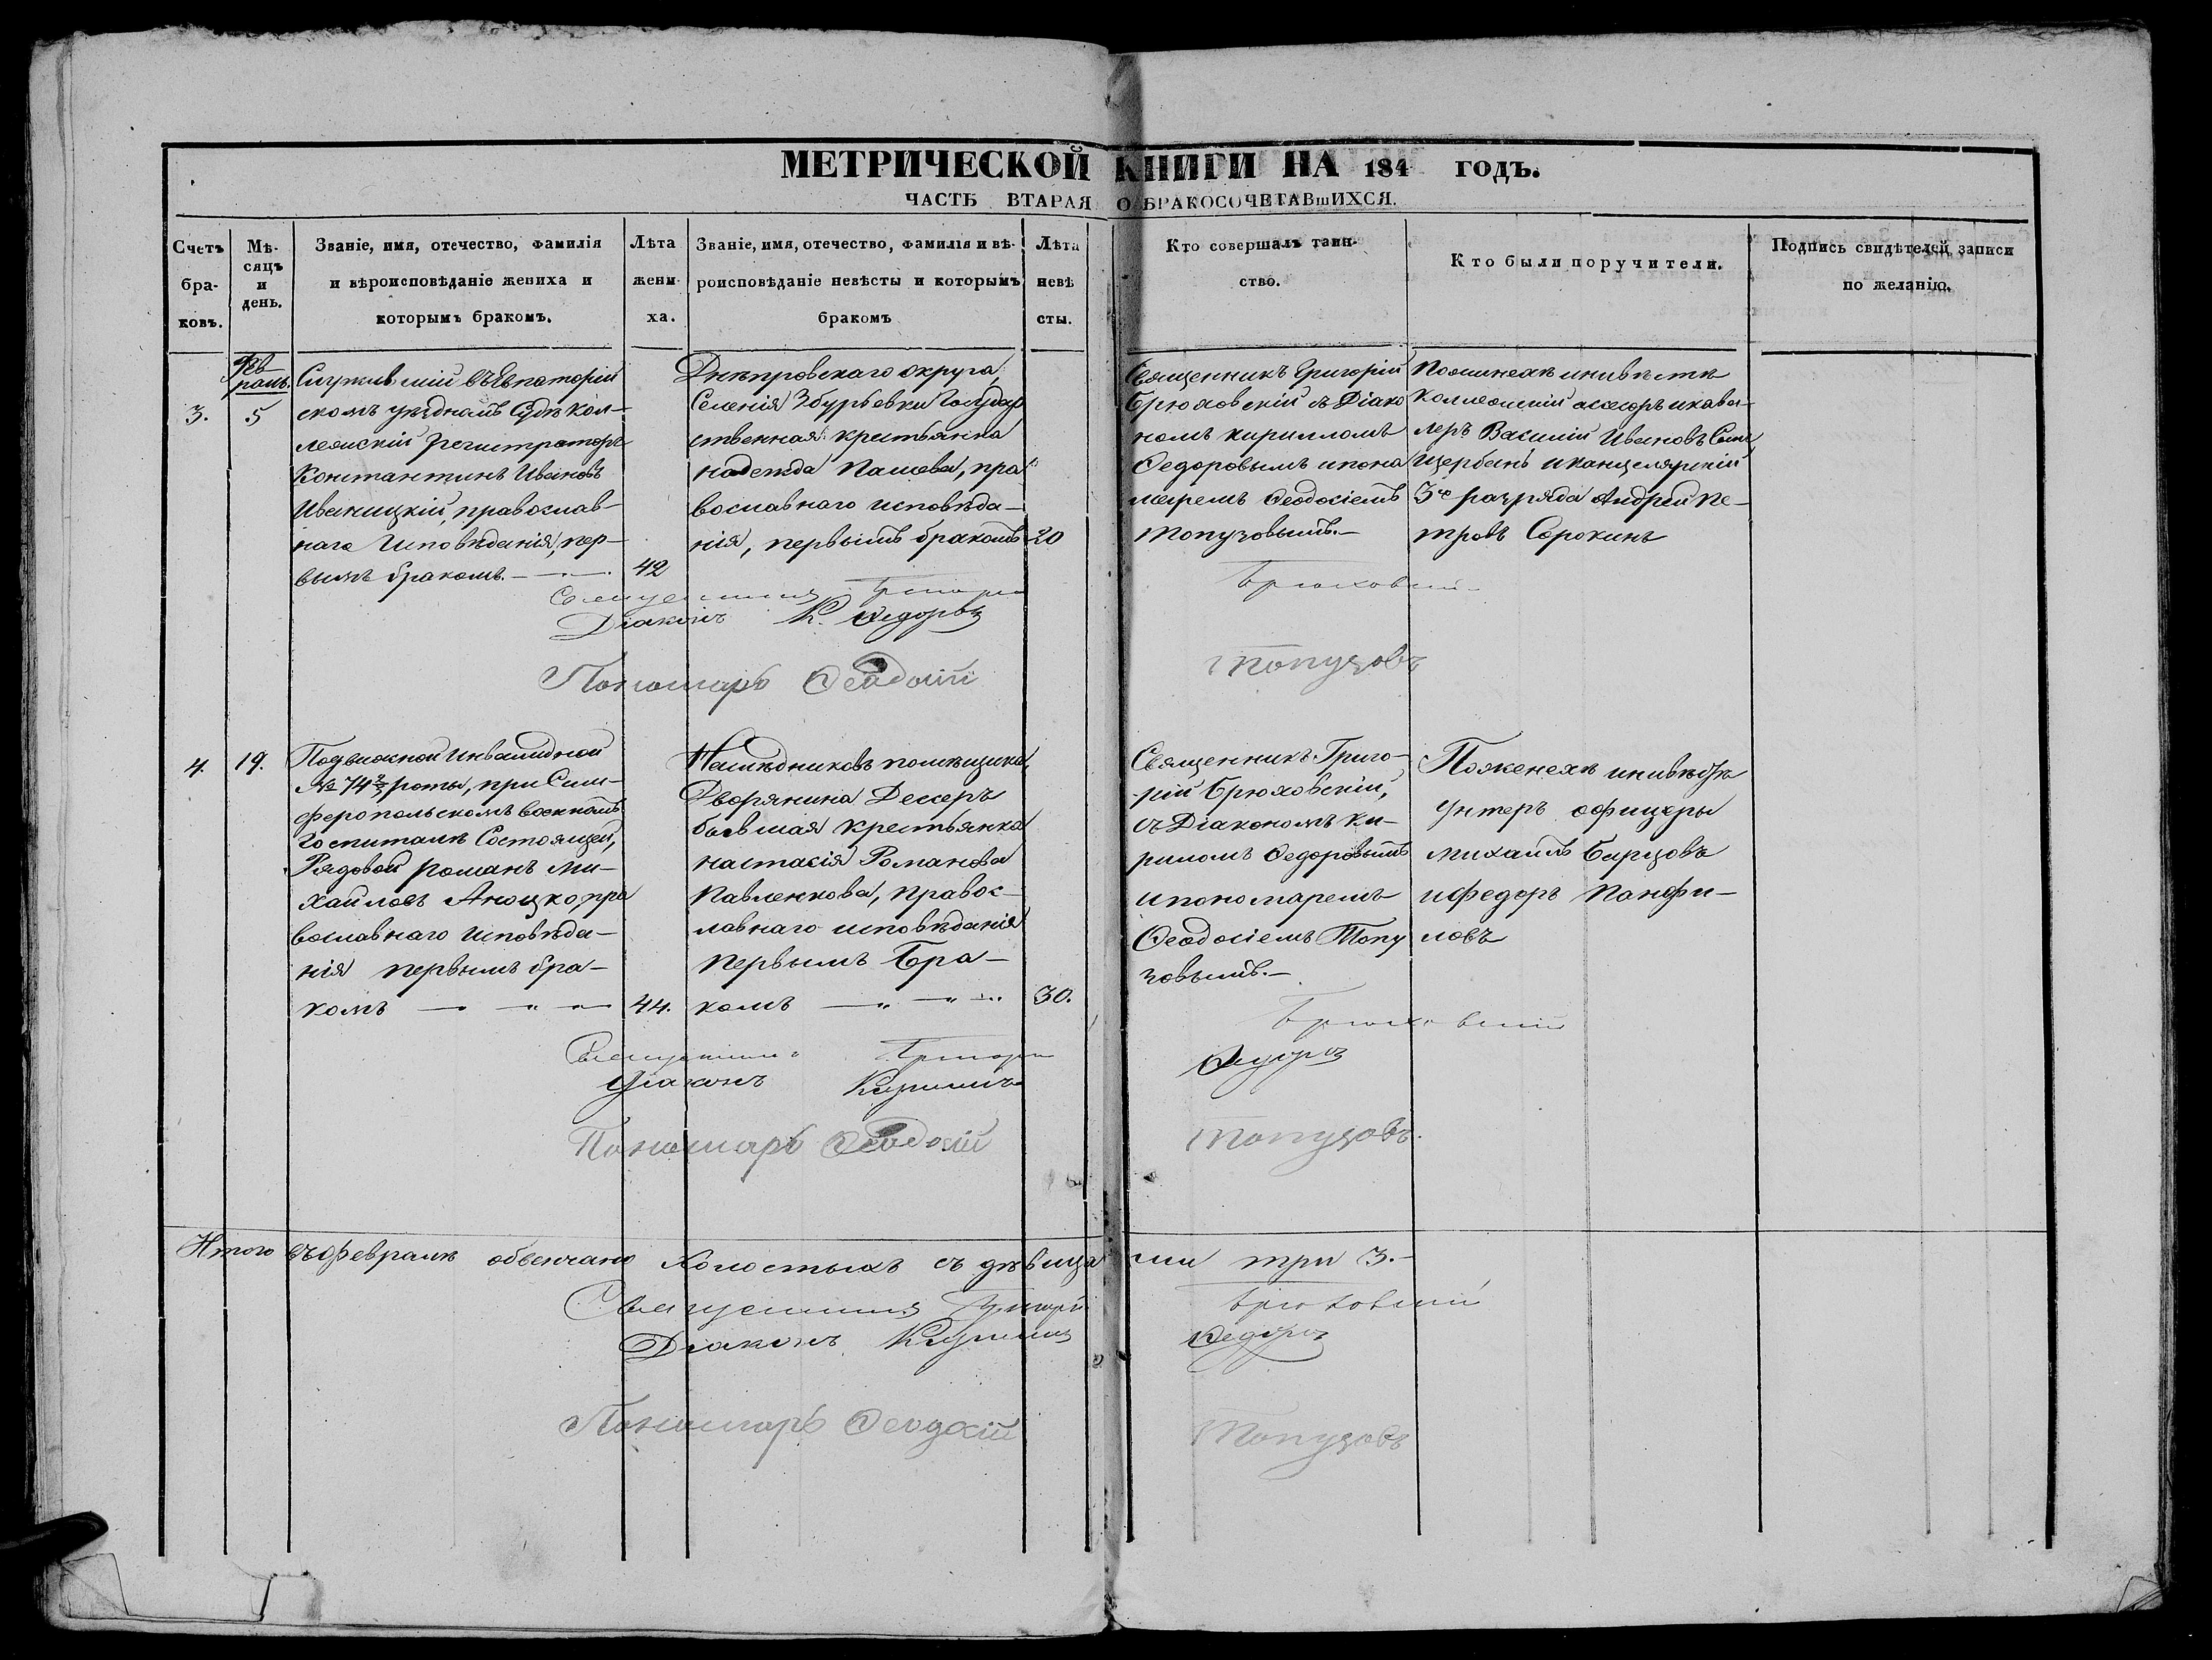 МЕТРИЧЕСКОЙ КНИГИ НА 184 ГОДЪ.
ЧАСТЬ ВТАРАЯ О БРАКОСОЧЕТАВшИХСЯ.
Счетъ
бра-
ковъ.
Мѣ-
сяцъ
и
день.
Званіе, имя, отечество, фамилія
и вѣроисповѣданіе жениха и
которымъ бракомъ.
Лѣта
жени-
ха.
Званіе, имя, отечество, фамилія и вѣ-
роисповѣданіе невѣсты и которымъ
бракомъ
Лѣта
невѣ
сты.
Кто совершалъ таин-
ство.
Кто были поручители.
Подпись свидѣтелей записи
по желанію.
3.
Фев
раль.
5
Служившій въ Евпаторій
скомъ уѣздномъ Судѣ кол-
лежскій регистраторъ
Константинъ Ивановъ
Иваницкій, православ-
наго Исповѣданія, пер-
вымъ бракомъ.
42
Днѣпровскаго округа,
Селенія Збурьевки Государ
ственная крестьянка
надежда Пашева, пра
вославнаго исповѣда-
нія, первымъ бракомъ
20
Священникъ Григорій
Брюховскій съ Діако
номъ кириломъ
Ѳедоровымъ и пона
маремъ Ѳеодосіемъ
Топузовымъ.-
По женихѣ и невѣстѣ
Коллежскій асессоръ и кава-
леръ Василій Ивановъ
Щербань и канцелярскій
3го разряда Андрей Пе-
тровъ Сорокинъ
Священникъ Григорій Брюховскій
Діаконъ К. Ѳедоровъ
Пономарь Ѳеодосій Топузовъ
4.
19.
Подвижной Инвалидной
№ 74 2/3 роты, при Сим-
феропольскомъ военномъ
Госпиталѣ Состоящей,
Рядовой романъ Ми-
хайловъ Аноцко, пра
вославнаго Исповѣда-
нія первымъ бра-
комъ
44.
Наслѣдниковъ помѣщика,
Дворянина Дессеръ
бывшая крестьянка
настасія Романова
Павленкова, Правос-
лавнаго исповѣданія
Первымъ Бра-
комъ
30.
Священникъ Григо-
рій Брюховскій,
съ Діакономъ Ки-
риломъ Ѳедоровымъ
и пономаремъ
Ѳеодосіемъ Топу
зовымъ.-
По женихѣ и невѣстѣ
Унтеръ офицеры
Михаилъ Бирцовъ
и федоръ Панфи-
ловъ
Священникъ Григорій Брюховскій
Діаконъ Кирилъ Ѳедоровъ
Пономарь Ѳеодосій Топузовъ.
Итого въ Февралѣ обвенчано холостыхъ съ дѣвица ми три 3.-
Священникъ Григорій Брюховскій
Діаконъ Кирилъ Ѳедоровъ
Пономарь Ѳеодосій Топузовъ